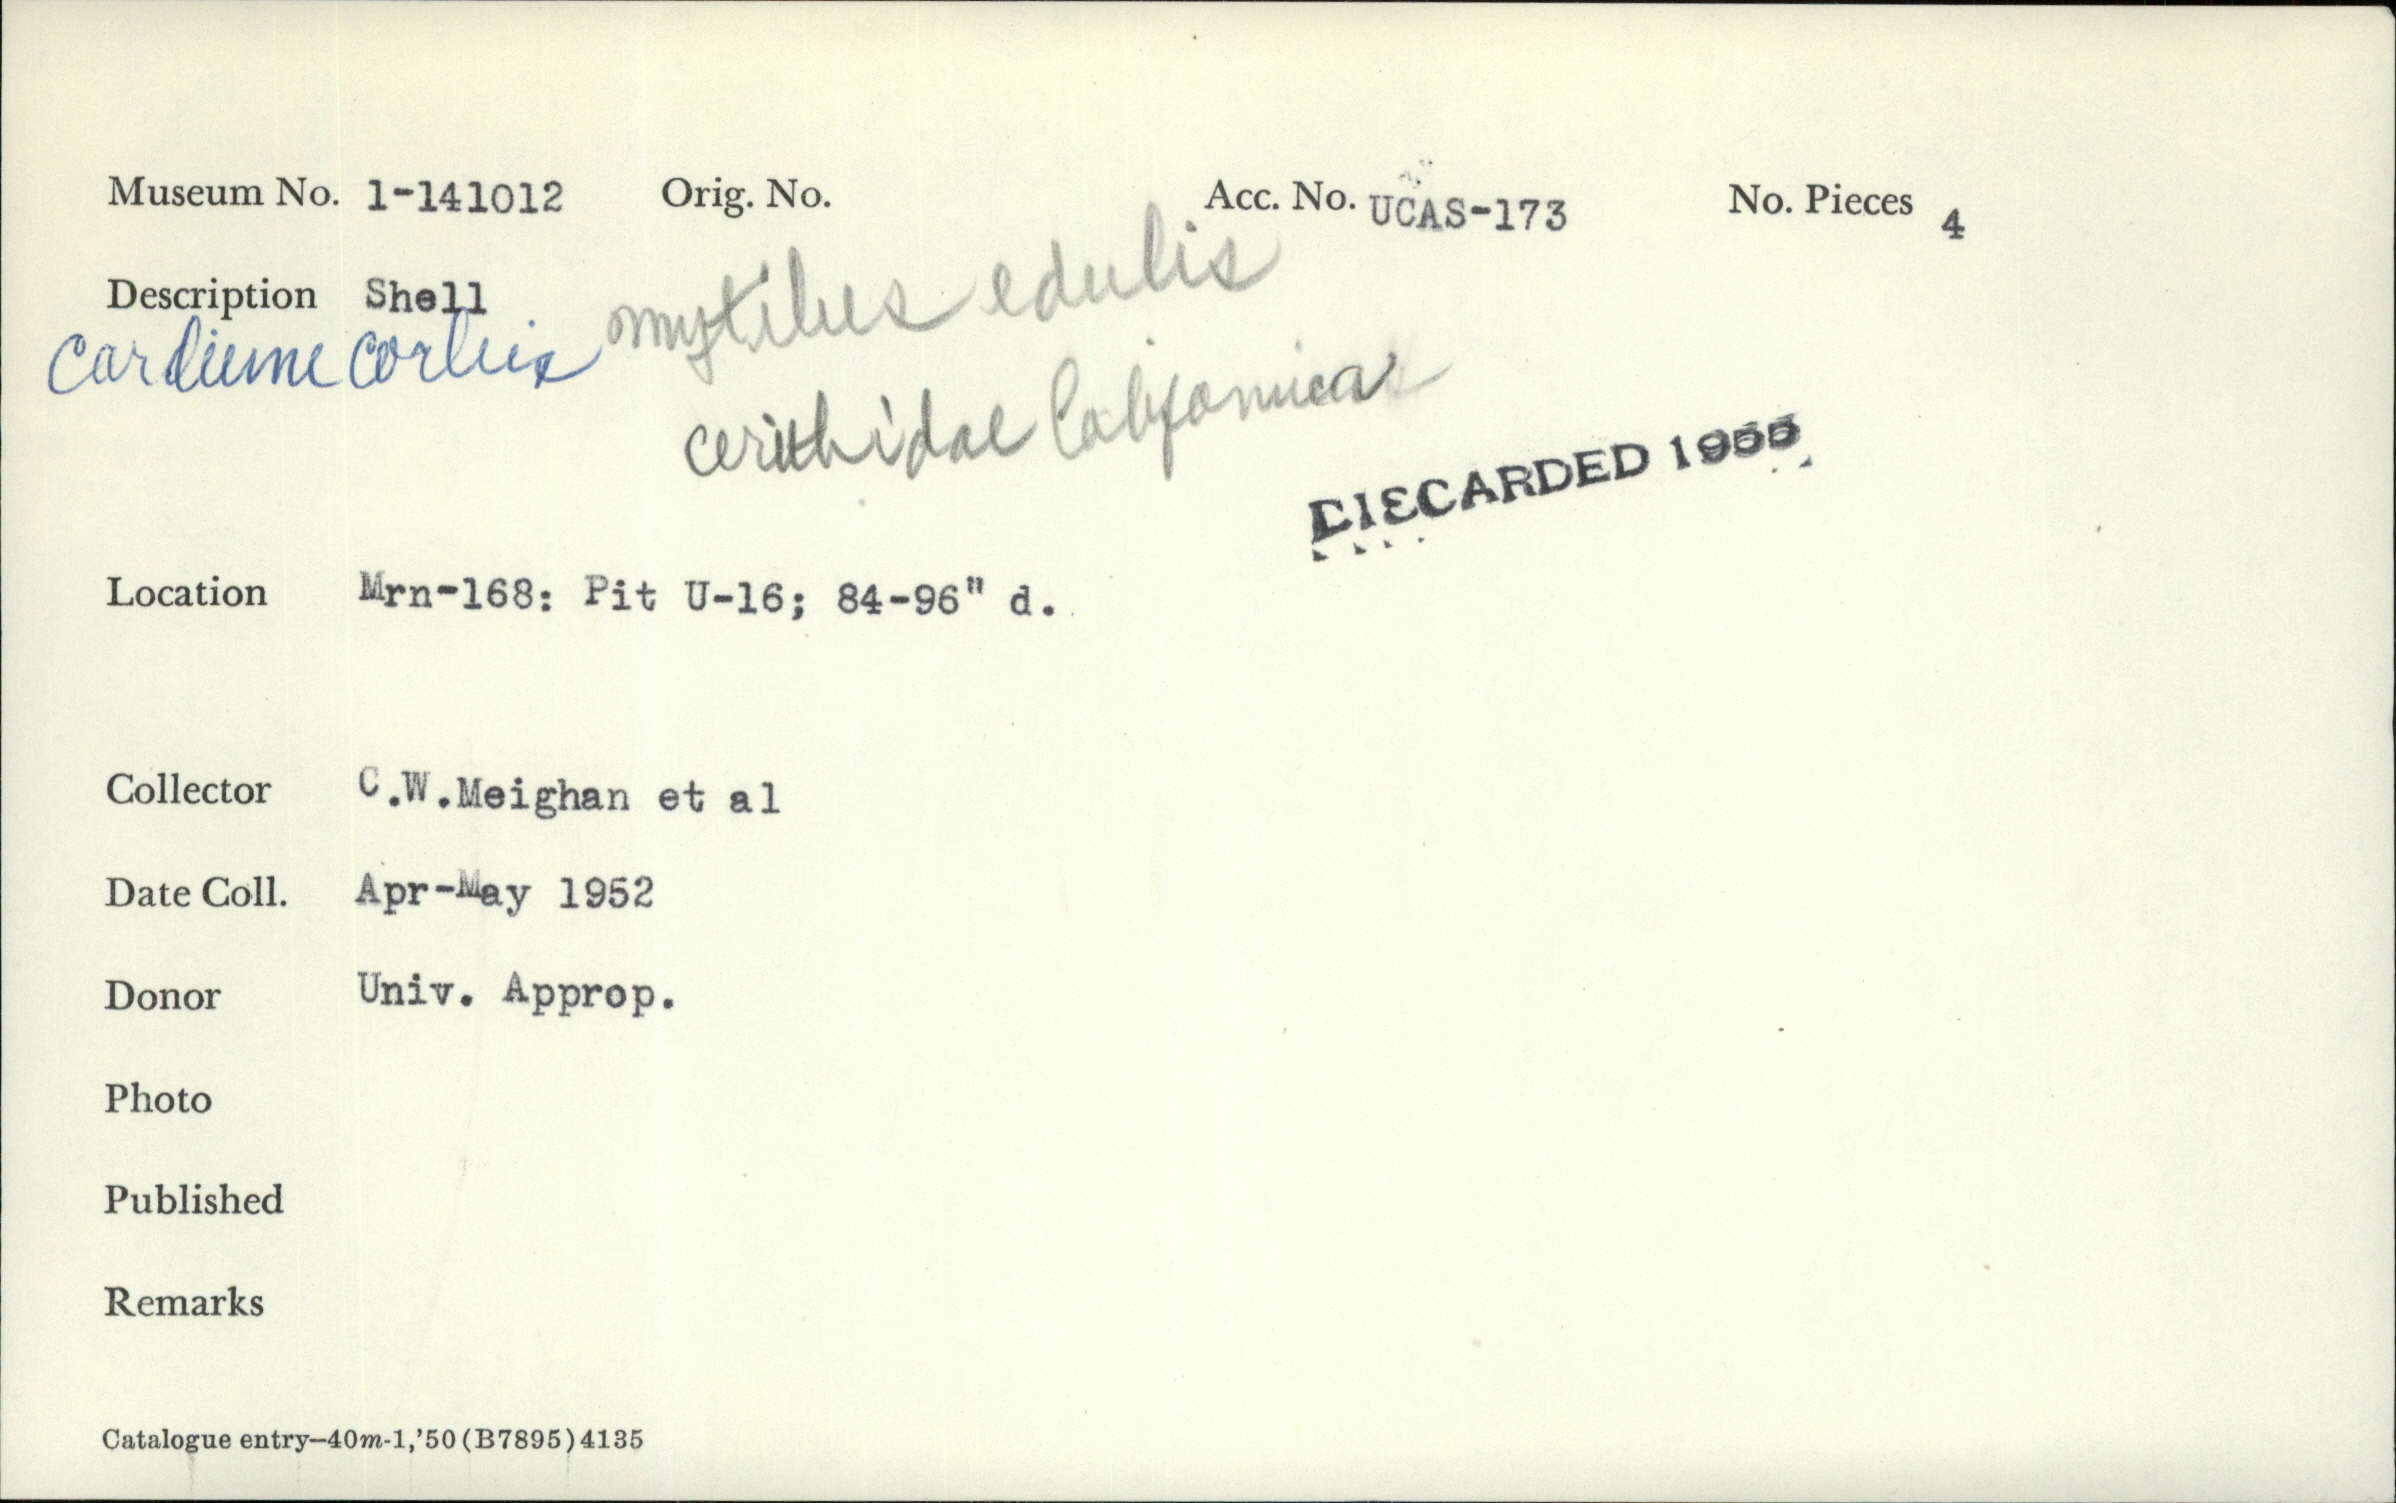 Museum No. 1-141012 Orig. No. Acc. No. UCAS-173 No. Pieces 4
Description Shell mytilus edulis
Cardium corbis
cerithidae Californica
DISCARDED 1955
Location Mrn-168: Pit U-16; 84-96" d.
Collector C.W.Meighan et al
Date Coll. Apr-May 1952
Donor Univ. Approp.
Photo
Published
Remarks
Catalogue entry—40m-1,'50(B7895)4135